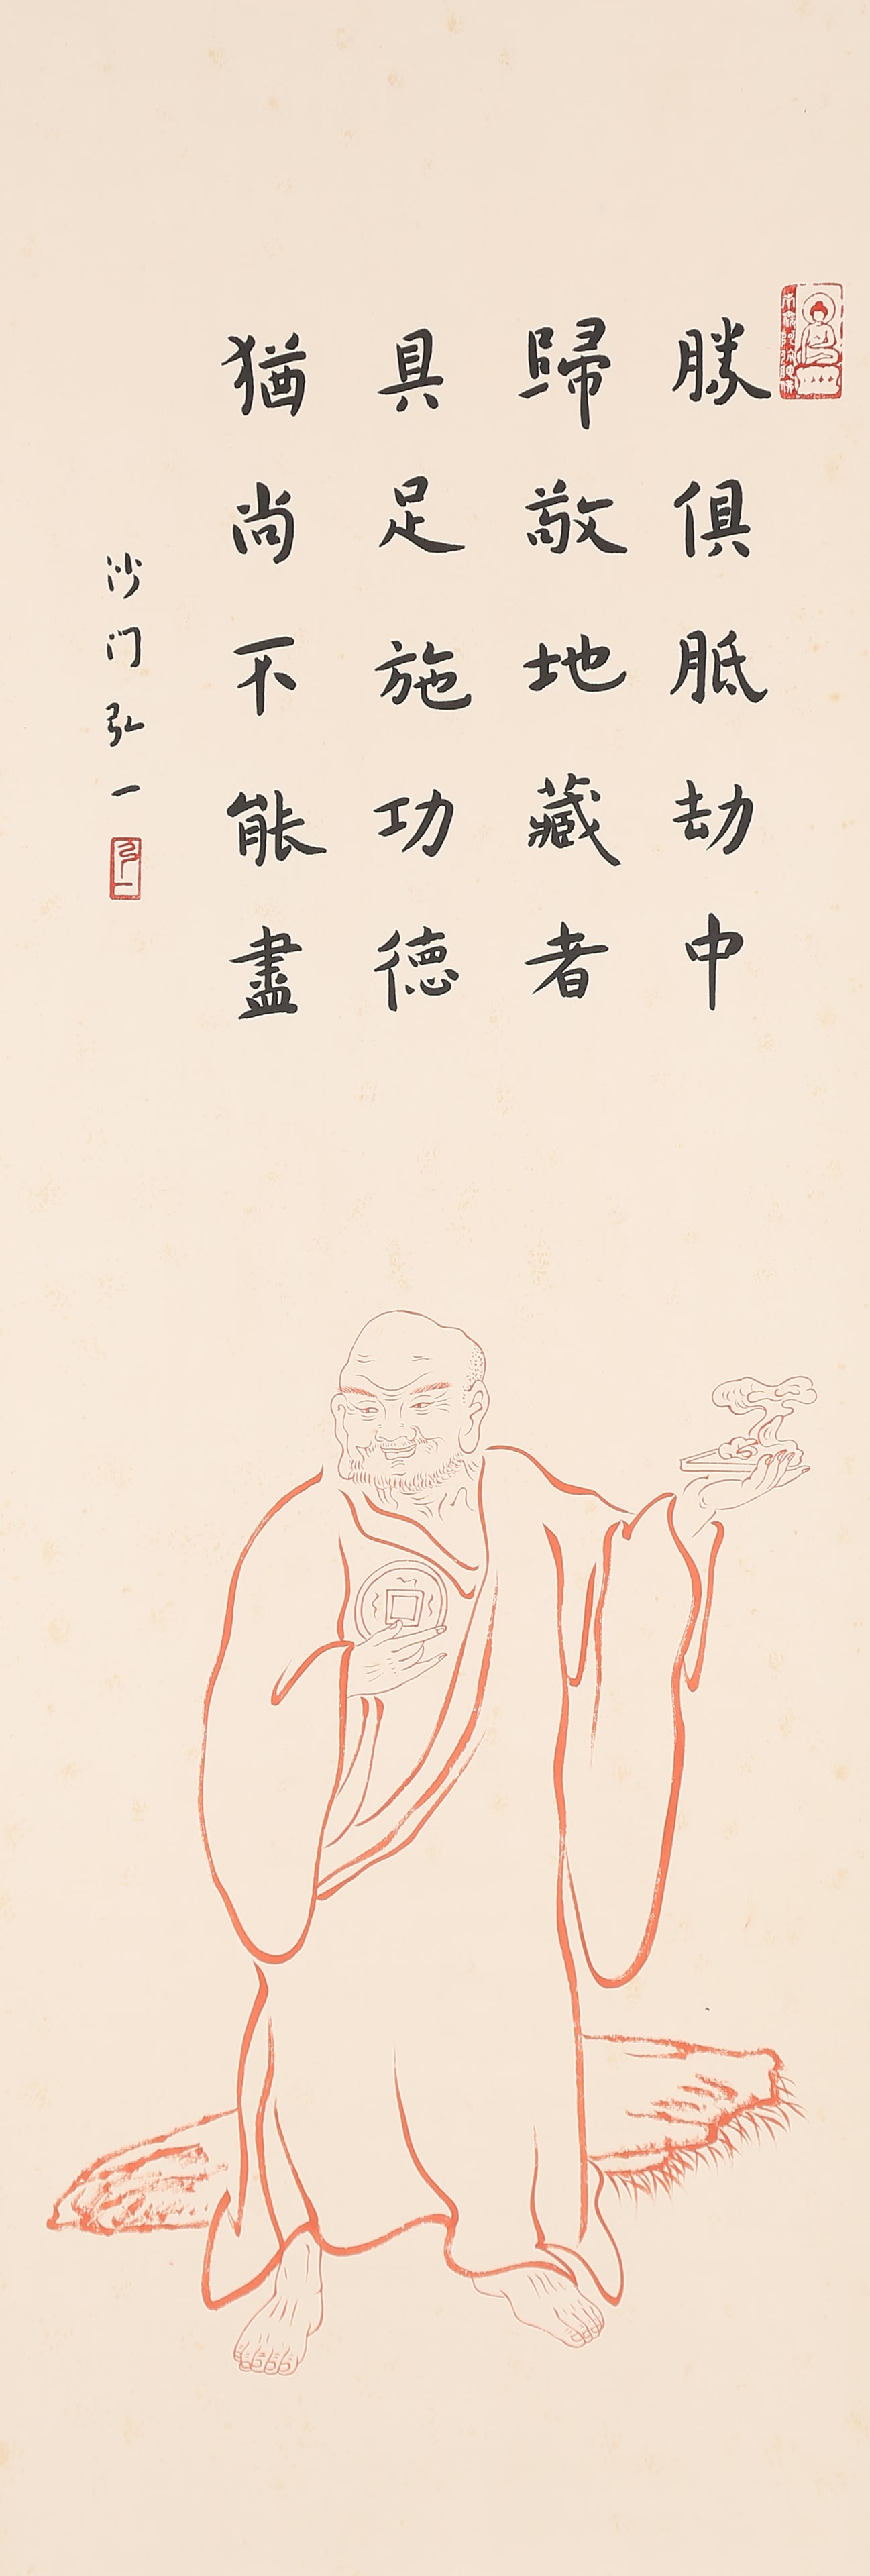 勝俱胝劫中
歸敬地藏者
具足施功德
猶尚不能盡
沙门弘一
弘一